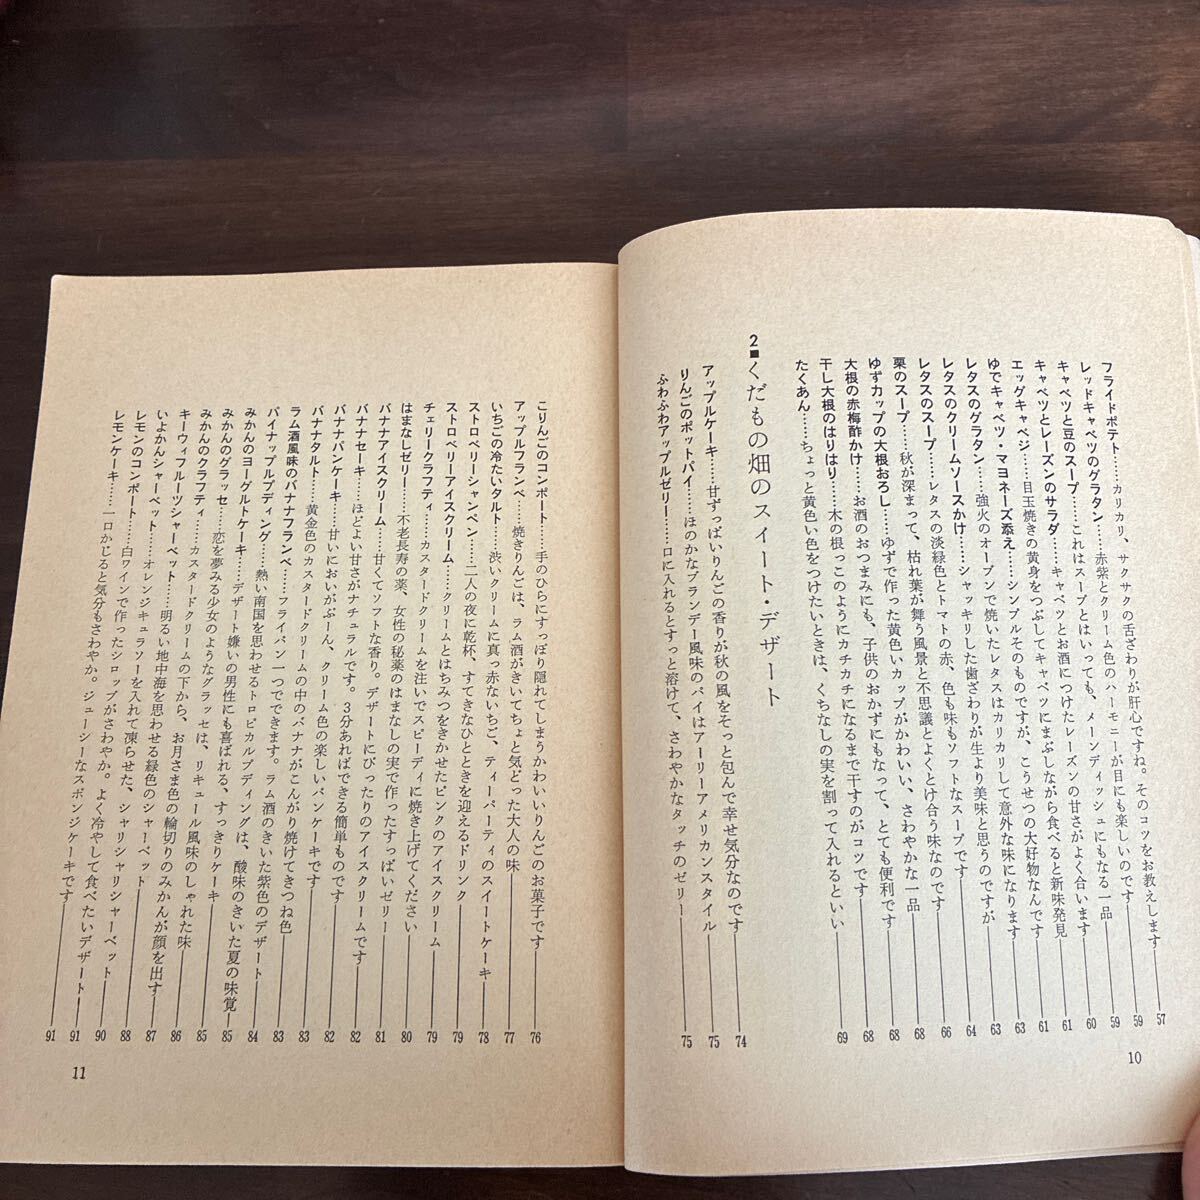 フライドポテト……カリカリ、サクサクの舌ざわりが肝心ですね。そのコツをお教えします――57
レッドキャベツのグラタン……赤紫とクリーム色のハーモニーが目にも楽しいのです――59
キャベツと豆のスープ……これはスープとはいっても、メーンディッシュにもなる一品――59
キャベツとレーズンのサラダ……キャベツとお酒につけたレーズンの甘さがよく合います――60
エッグキャベジ……目玉焼きの黄身をつぶしてキャベツにまぶしながら食べると新味発見――61
ゆでキャベツ・マヨネーズ添え……シンプルそのものですが、こうせつの大好物なんです――61
レタスのグラタン……強火のオーブンで焼いたレタスはカリカリして意外な味になります――63
レタスのクリームソースかけ……シャッキリした歯ざわりが生より美味と思うのですが――63
レタスのスープ……レタスの淡緑色とトマトの赤、色も味もソフトなスープです――64
栗のスープ……秋が深まって、枯れ葉が舞う風景と不思議とよくとけ合う味なのです――66
ゆずカップの大根おろし……ゆずで作った黄色いカップがかわいい、さわやかな一品――68
大根の赤梅酢かけ……お酒のおつまみにも、子供のおかずにもなって、とても便利です――68
干し大根のはりはり……木の根っこのようにカチカチになるまで干すのがコツです――68
たくあん……ちょっと黄色い色をつけたいときは、くちなしの実を割って入れるといい――69
2■くだもの畑のスイート・デザート
アップルケーキ……甘ずっぱいりんごの香りが秋の風をそっと包んで幸せ気分なのです――74
りんごのポットパイ……ほのかなブランデー風味のパイはアーリーアメリカンスタイル――75
ふわふわアップルゼリー……口に入れるとすっと溶けて、さわやかなタッチのゼリー――75
10
こりんごのコンポート……手のひらにすっぽり隠れてしまうかわいいりんごのお菓子です――76
アップルフランベ……焼きりんごは、ラム酒がきいてちょっと気どった大人の味――77
いちごの冷たいタルト……渋いクリームに真っ赤ないちご、ティーパーティのスイートケーキ――78
ストロベリーシャンペン……二人の夜に乾杯、すてきなひとときを迎えるドリンク――79
ストロベリーアイスクリーム……クリームとはちみつをきかせたピンクのアイスクリーム――79
チェリークラフティ……カスタードクリームを注いでスピーディに焼き上げてください――80
はまなしゼリー……不老長寿の薬、女性の秘薬のはまなしの実で作ったすっぱいゼリー――81
バナナアイスクリーム……甘くてソフトな香り。デザートにぴったりのアイスクリームです――82
バナナセーキ……ほどよい甘さがナチュラルです。3分あればできる簡単ものです――82
バナナパンケーキ……甘いにおいがぷーん、クリーム色の楽しいパンケーキです――83
バナナタルト……黄金色のカスタードクリームの中のバナナがこんがり焼けてきつね色――83
ラム酒風味のバナナフランベ……フライパン一つでできます。ラム酒のきいた紫色のデザート――84
パイナップルプディング……熱い南国を思わせるトロピカルプディングは、酸味のきいた夏の味覚――85
みかんのヨーグルトケーキ……デザート嫌いの男性にも喜ばれる、すっきりケーキ――85
みかんのグラッセ……恋を夢みる少女のようなグラッセは、リキュール風味のしゃれた味――86
みかんのクラフティ……カスタードクリームの下から、お月さま色の輪切りのみかんが顔を出す――87
キーウィフルーツシャーベット……明るい地中海を思わせる緑色のシャーベット――88
いよかんシャーベット……オレンジキュラソーを入れて凍らせた、シャリシャリシャーベット――90
レモンのコンポート……白ワインで作ったシロップがさわやか。よく冷やして食べたいデザート――91
レモンケーキ……一口かじると気分もさわやか。ジューシーなスポンジケーキです――91
11